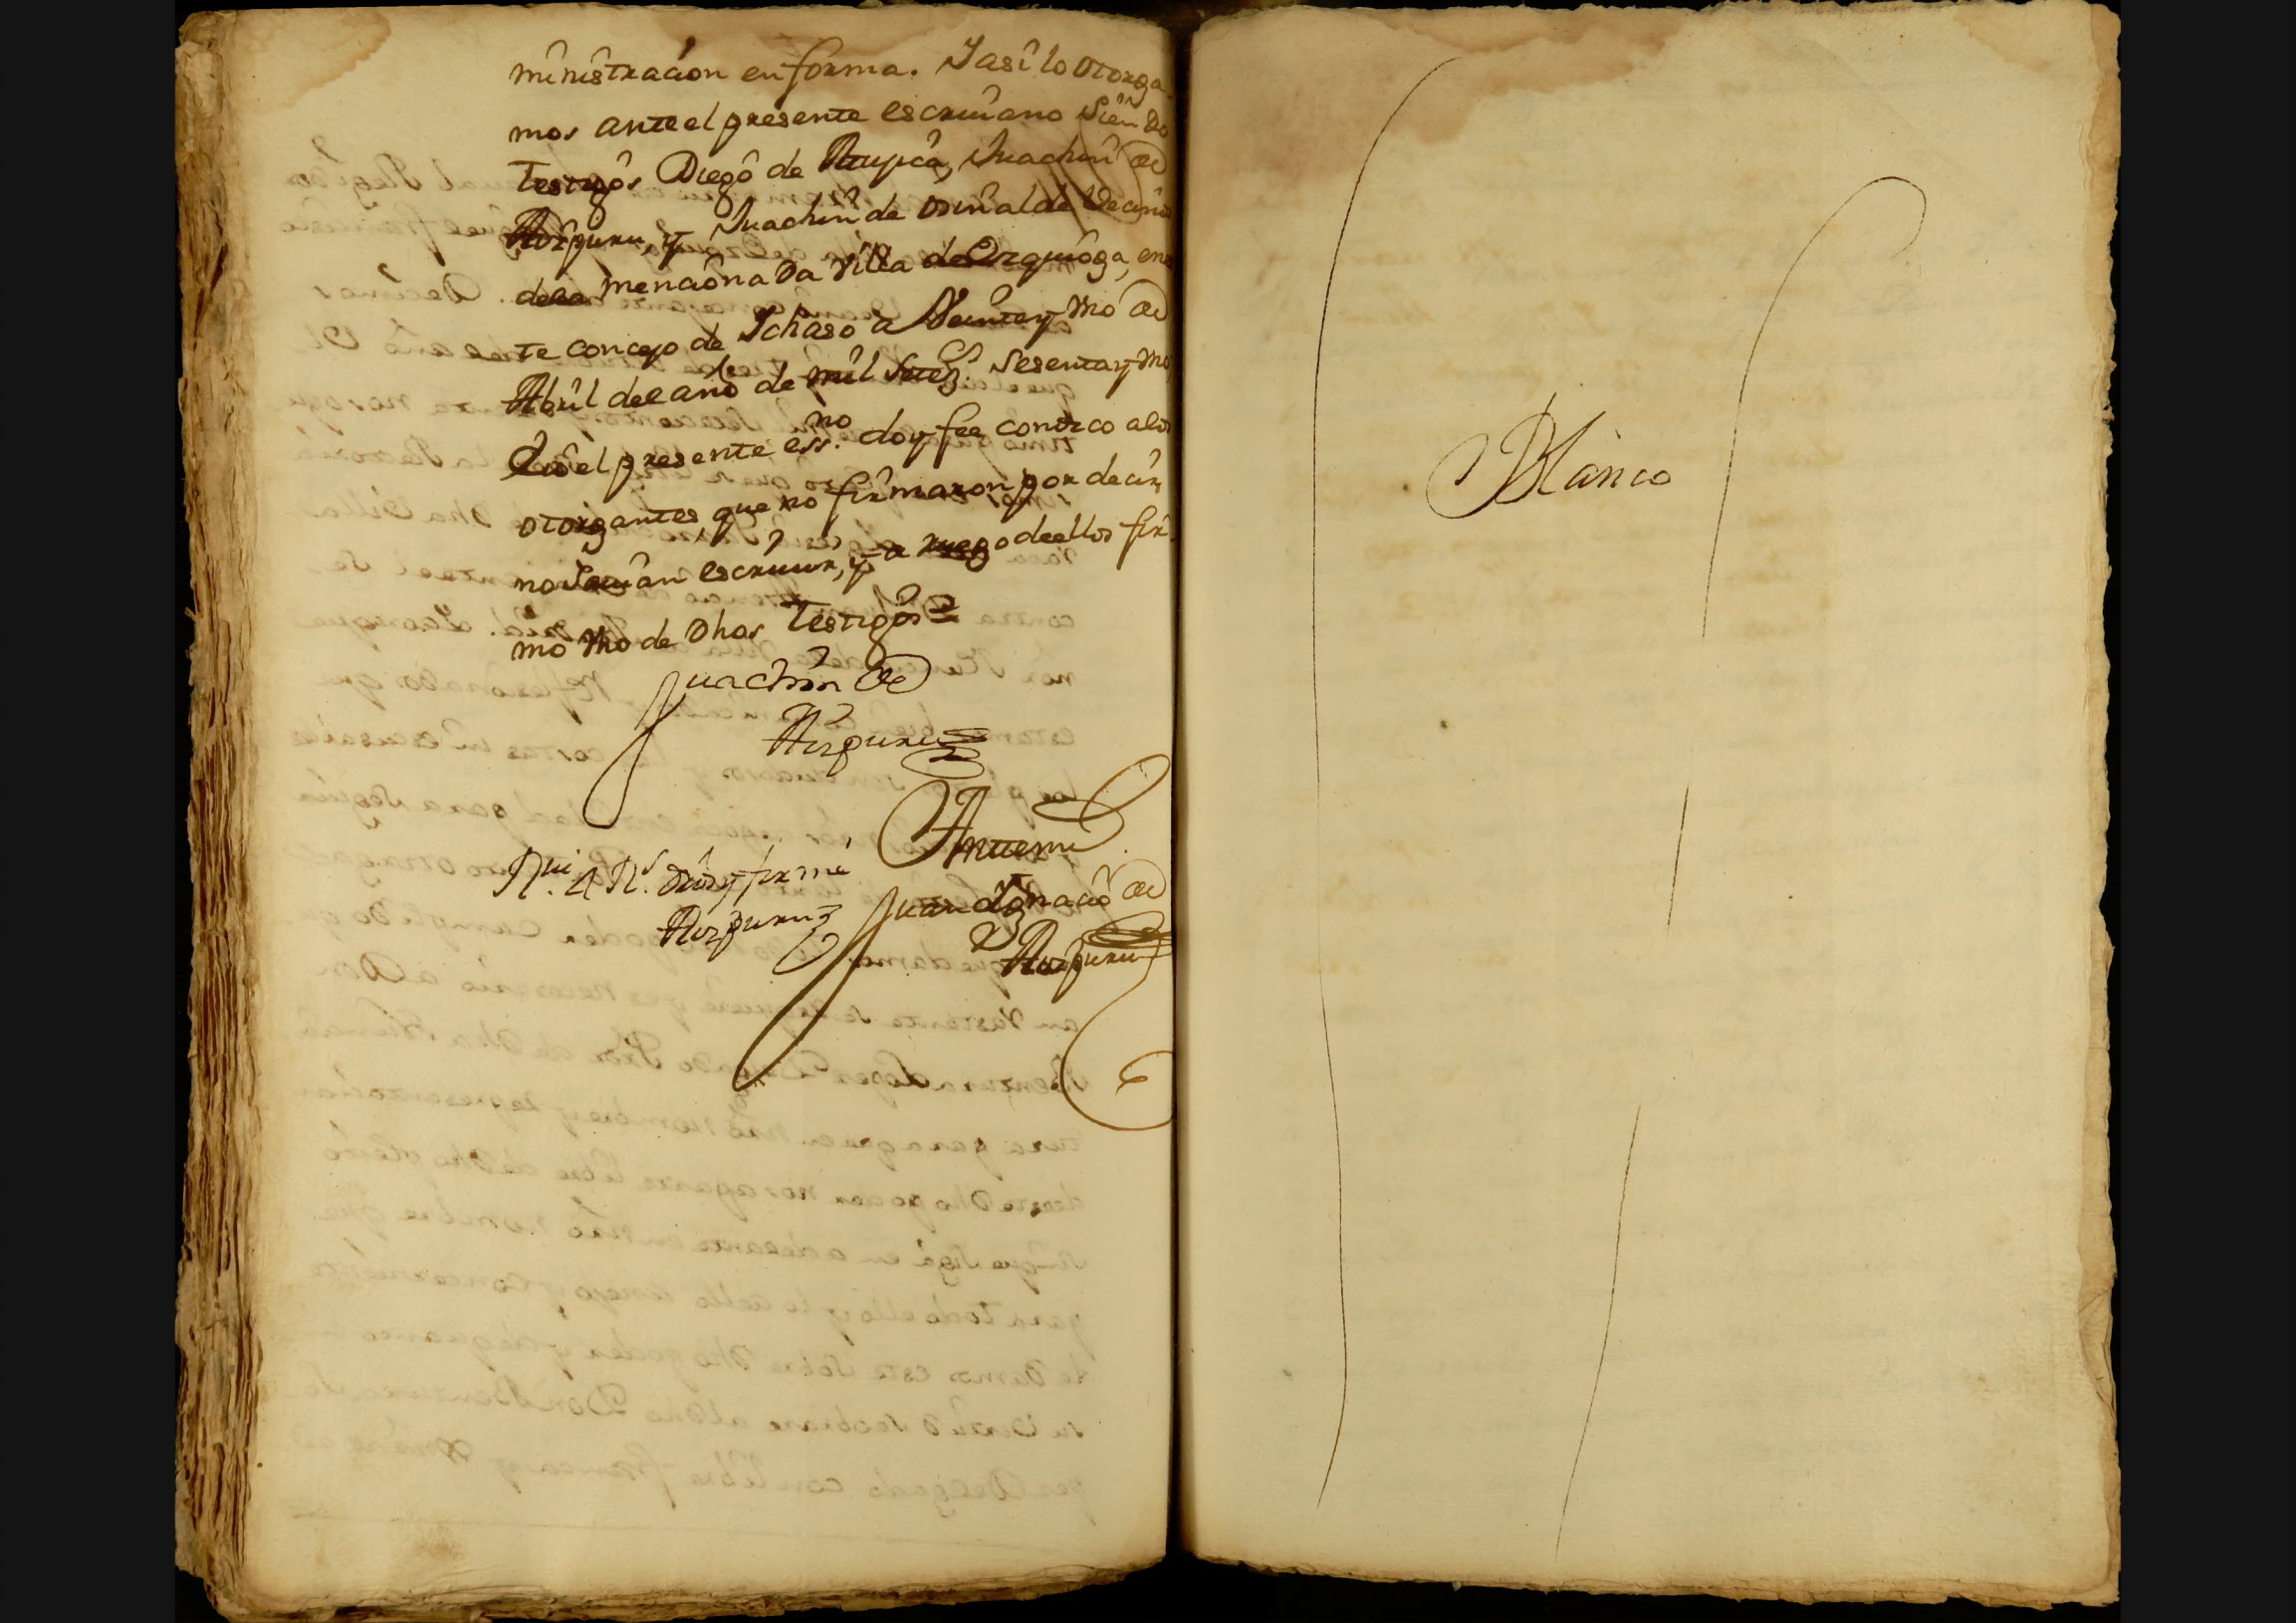 ministracion en forma. Y asi lo otorga
mos ante el presente escriuano siendo
testigos Diego de Juachin de
Aizpuru, y Juachin de Orinalde Vecinos
dela mencionada Villa de Vrquioga, enes
te concejo de Ychaso a Veinte y vno de
Abril del año de mil Setez.os Sesenta y vno
Eio el presente ess.no doy fee conozco alos
otorgantes, que no firmaron por decir,
no sauian escriuir, y a ruego de ellos fir
mo vno de dhos testigos
Juachin de
Aizpuru
Antemi
Juan Ygnacio de
Aizpuru
R.ui 4 R.s y firmé
Aizpuru
Blanco